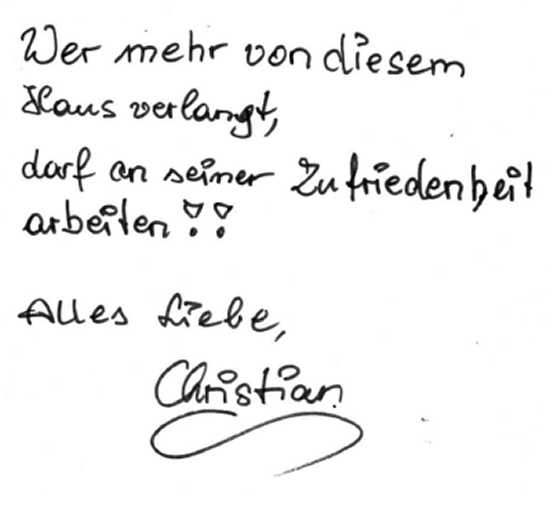 Wer mehr von diesem
Haus verlangt,
darf an seiner Zufriedenheit
arbeiten!!
Alles Liebe,
Christian